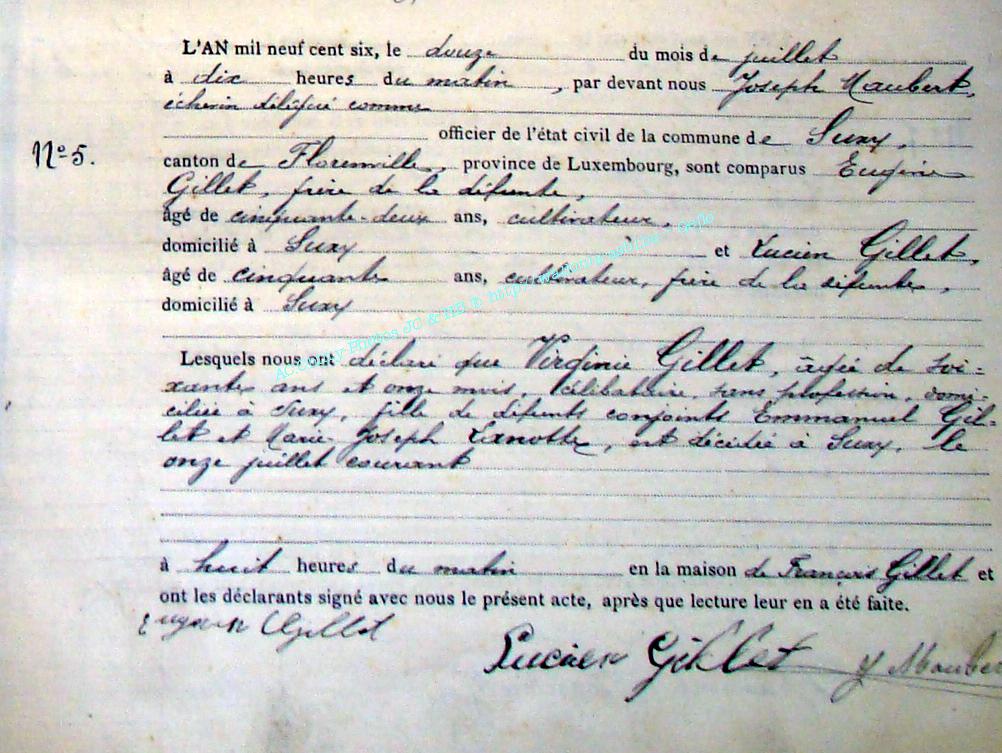 L'AN mil neuf cent six, le douze du mois de juillet
à dix heures du matin, par devant nous Joseph Maubert,
échevin délégué comme
officier de l'état civil de la commune de Suxy,
N° 5.
canton de Florenville, province de Luxembourg, sont comparus Eugène
Gillet, frère de la défunte,
âgé de cinquante-deux ans, cultivateur,
domicilié à Suxy et Lucien Gillet,
âgé de cinquante ans, cultivateur, frère de la défunte,
domicilié à Suxy
Lesquels nous ont déclaré que Virginie Gillet, âgée de soi-
xante ans et onze mois, célibataire, sans profession, domi-
ciliée à Suxy, fille de défunts conjoints Emmanuel Gil-
let et Marie-Joseph Lanotte, est décédée à Suxy, le
onze juillet courant
à huit heures du matin en la maison de François Gillet et
ont les déclarants signé avec nous le présent acte, après que lecture leur en a été faite.
Eugene Gillet
Lucien Gillet J Mauber